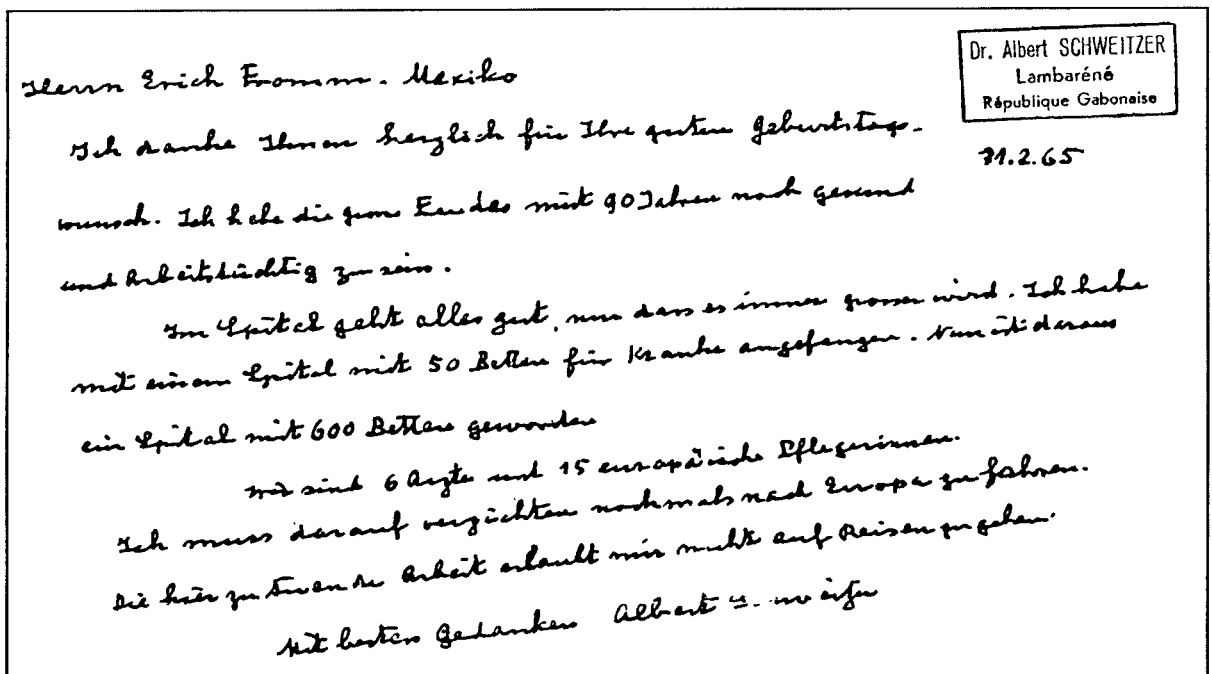 Dr. Albert SCHWEITZER
Lambaréné
République Gabonaise
Herrn Erich Fromm. Mexiko
Ich danke Ihnen herzlich für Ihre guten Geburtstags-
wunsch. Ich habe die grosse Freude mit 90 Jahren noch gesund
und Arbeitstüchtig zu sein.
Im Spital geht alles gut, nur dass es immer grosser wird. Ich habe
mit einem Spital mit 50 Betten für Kranke angefangen. Nun ist daraus
ein Spital mit 600 Betten geworden
Wir sind 6 Ärzte und 15 europäische Pflegerinnen.
Ich muss darauf verzichten nochmals nach Europa zu fahren.
Die hier zu tuende Arbeit erlaubt mir nicht auf Reisen zu gehen.
Mit besten Gedanken Albert